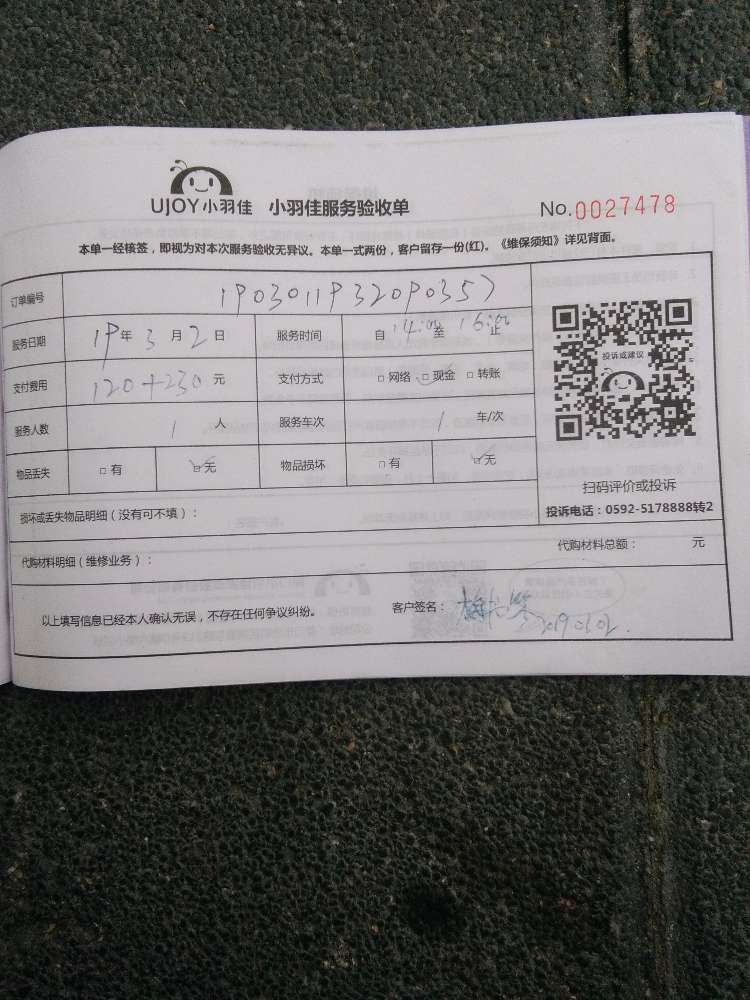 UJOY小羽佳 小羽佳服务验收单 No.0027478
本单一经核签，即视为对本次服务验收无异议。本单一式两份，客户留存一份(红)。《维保须知》详见背面。
订单编号 1903011932090357
服务日期 19年3月2日 服务时间 自14:00至16:00止
投诉或建议
支付费用 120+230元 支付方式 □网络 ☑现金 □转账
服务人数 1人 服务车次 1车/次
物品丢失 □有 ☑无 物品损坏 □有 ☑无
扫码评价或投诉
投诉电话：0592-5178888转2
损坏或丢失物品明细（没有可不填）：
代购材料明细（维修业务）： 代购材料总额： 元
以上填写信息已经本人确认无误，不存在任何争议纠纷。 客户签名： 20190302.